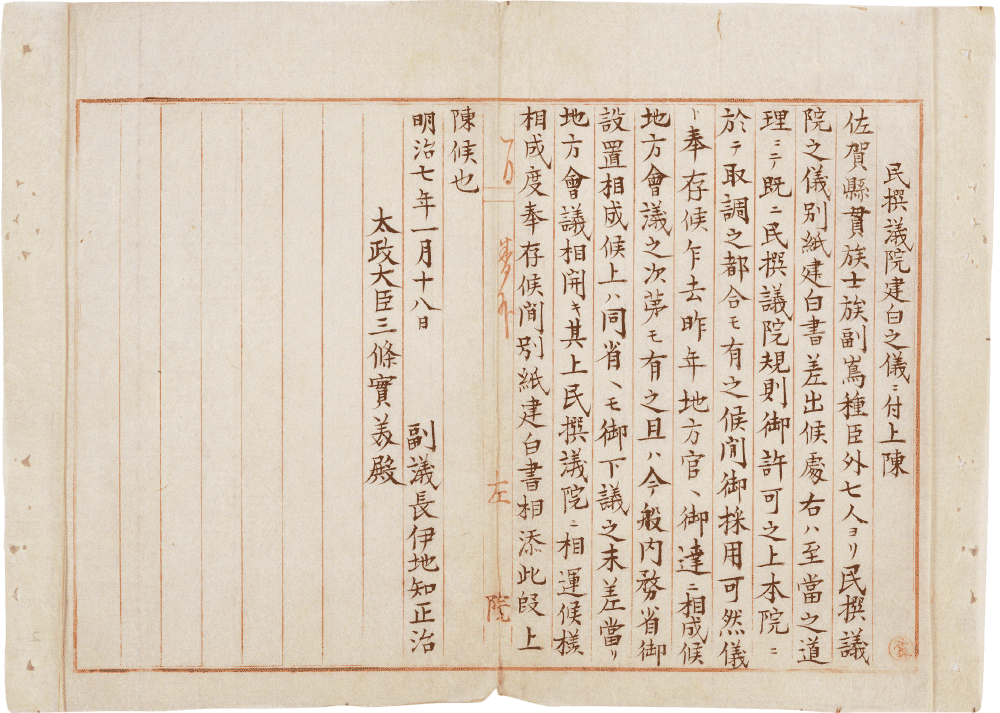 民撰議院建白之儀ニ付上陳
佐賀縣貫族士族副嶌種臣外七人ヨリ民撰議
院之儀別紙建白書差出候處右ハ至當之道
理ニテ既ニ民撰議院規則御許可之上本院ニ
於テ取調之都合モ有之候間御採用可然儀
ト奉存候乍去昨年地方官ヘ御達ニ相成候
地方會議之次第モ有之且ハ今般内務省御
設置相成候上ハ同省ヘモ御下議之末差當リ
地方會議相開キ其上民撰議院ニ相運候様
相成度奉存候間別紙建白書相添此段上
左院
陳候也
明治七年一月十八日
副議長伊地知正治
太政大臣三條實美殿